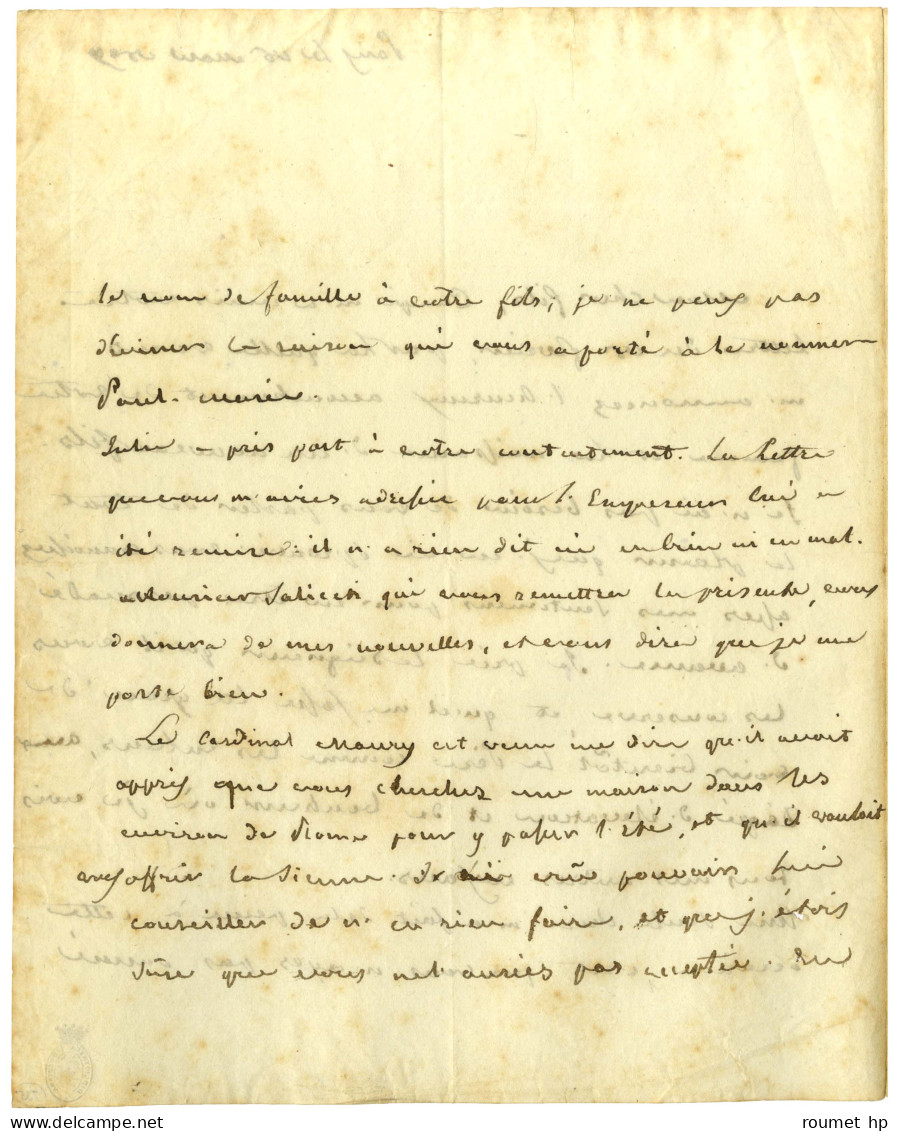 le nom de famille à votre fils; je ne peux pas
diviner la raison qui vous a porté à le nommer
Paul-marie.
Julie a pris part à votre contentement. La Lettre
que vous m'aviés adressée pour l'Empereur lui a
été remise: il n'a rien dit ni en bien ni en mal.
Monsieur Saliceti qui vous remettra la présente, vous
donnera de mes nouvelles, et vous dira que je me
porte bien.
Le Cardinal Maury est venu me dire qu'il avoit
appris que vous cherchez une maison dans les
environ de Rome pour y passer l'été, et qu'il vouloit
offrir la sienne. crû pouvoir lui
conseiller de n'en rien faire, et que j'étois
sûre que vous ne l'auriés pas acceptée. En
roumet hp